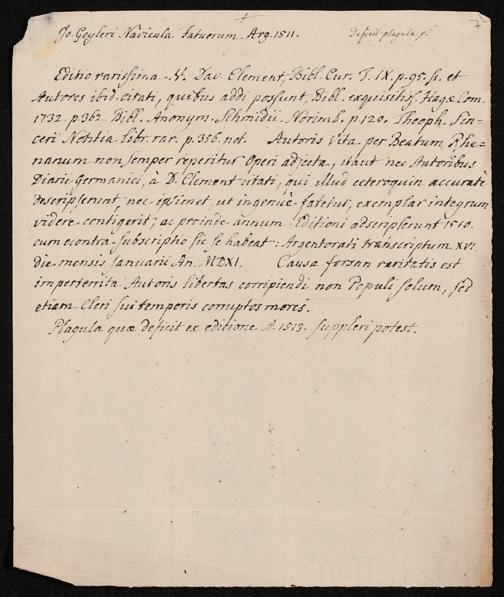 Jo. Geyleri Navicula Fatuorum Arg. 1511. Deficit plagula y.
Editio rarissima V. Dav. Clement, Bibl. Cur. T. IX. p. 95. ss. et
Autores ibid. citati, quibus addi possunt, Bibl. exquisitiss. Hagæ Com.
1732. p. 362. Bibl. Anonym. Schmidii. Norimb. p. 120. Theoph. Sin-
ceri Notitia libr. rar. p. 356. not. Autoris Vita per Beatum Rhe-
nanum non semper reperitur Operi adjecta, itaut nec Autoribus
Diarii Germanici, à D. Clement citati, qui illud ceteroquin accuratè
descripserunt, nec ipsimet, ut ingenuè fatetur, exemplar integrum
videre contigerit; ac proinde annum Editioni adscripserunt 1510.
cum econtra subscriptio sic se habeat: Argentorati transcriptum XVI.
die mensis Januarii An. MDXI. Causa forsan raritatis est
imperterrita Autoris libertas corripiendi non Populi solum, sed
etiam Cleri sui temporis corruptos mores.
Plagula quæ deficit ex editione A. 1513. suppleri potest.